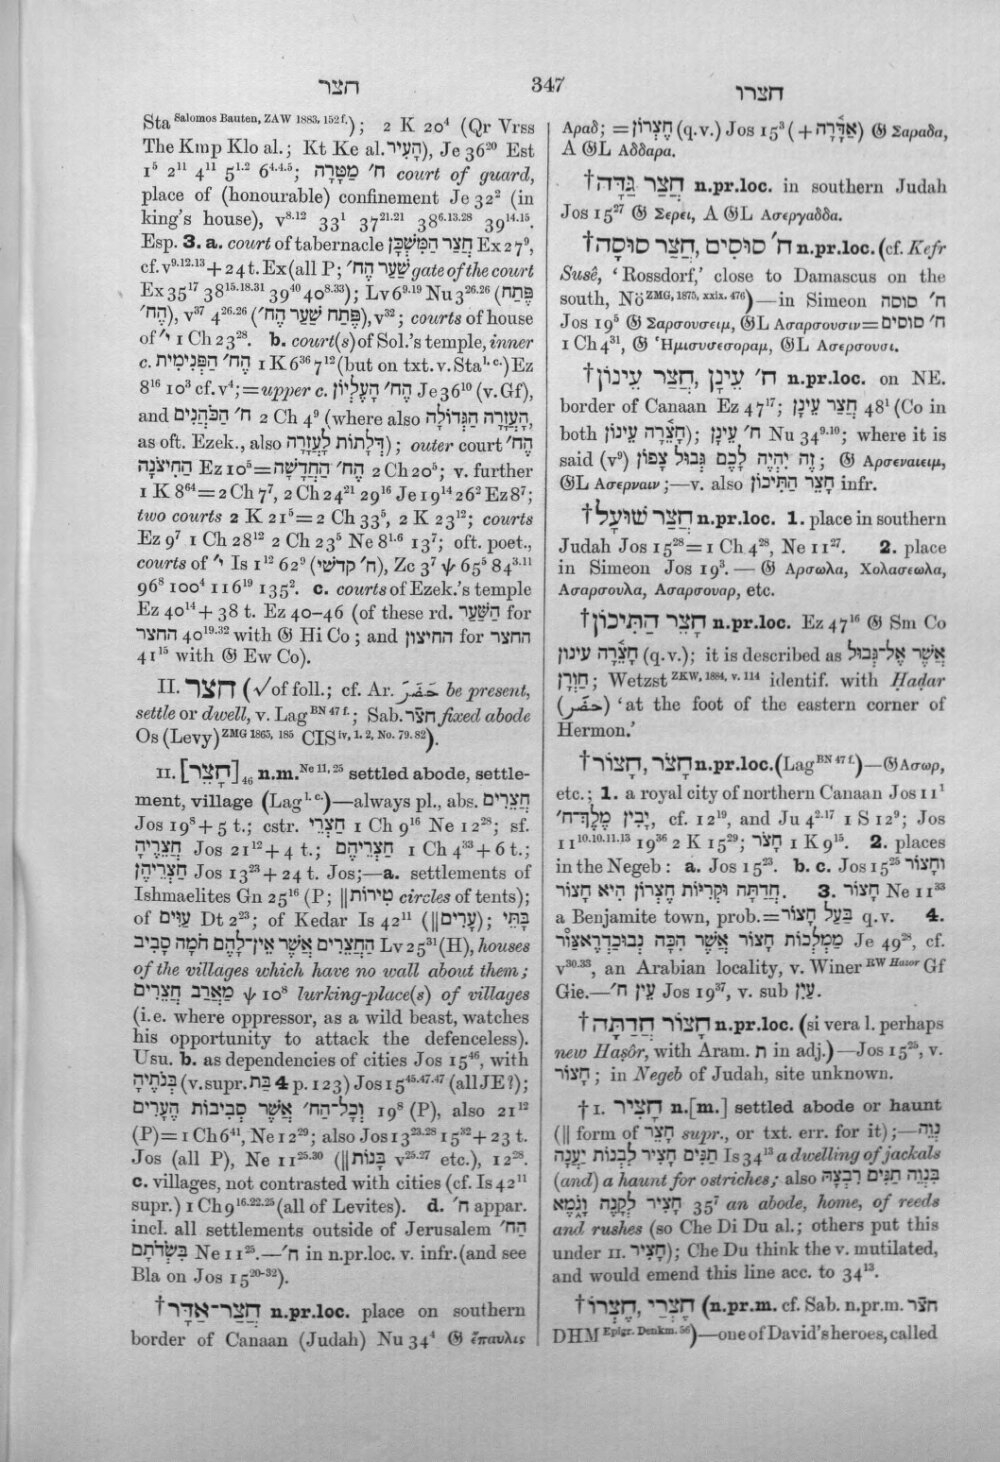 חצר
347
חצרו
Sta Salomos Bauten, ZAW 1883, 152 f.); 2 K 20⁴ (Qr Vrss
The Kmp Klo al.; Kt Ke al. הָעִיר), Je 36²⁰ Est
1⁵ 2¹¹ 4¹¹ 5¹·² 6⁴·⁴·⁵; ח׳ מַטָּרָה court of guard,
place of (honourable) confinement Je 32² (in
king's house), v⁸·¹² 33¹ 37²¹·²¹ 38⁶·¹³·²⁸ 39¹⁴·¹⁵.
Esp. 3. a. court of tabernacle חֲצַר הַמִּשְׁכָּן Ex 27⁹,
cf. v⁹·¹²·¹³ + 24 t. Ex (all P; שַׁעַר הֶח׳ gate of the court
Ex 35¹⁷ 38¹⁵·¹⁸·³¹ 39⁴⁰ 40⁸·³³); Lv 6⁹·¹⁹ Nu 3²⁶·²⁶ (פֶּתַח
הֶח׳), v³⁷ 4²⁶·²⁶ (פֶּתַח שַׁעַר הֶח׳), v³²; courts of house
of י״ 1 Ch 23²⁸. b. court(s) of Sol.'s temple, inner
c. הֶח׳ הַפְּנִימִית 1 K 6³⁶ 7¹² (but on txt. v. Sta l. c.) Ez
8¹⁶ 10³ cf. v⁴; = upper c. הֶח׳ הָעֶלְיוֹן Je 36¹⁰ (v. Gf),
and ח׳ הַכֹּהֲנִים 2 Ch 4⁹ (where also הָעֲזָרָה הַגְּדוֹלָה,
as oft. Ezek., also דְּלָתוֹת לָעֲזָרָה); outer court הֶח׳
הַחִיצֹנָה Ez 10⁵ = הֶח׳ הַחֲדָשָׁה 2 Ch 20⁵; v. further
1 K 8⁶⁴ = 2 Ch 7⁷, 2 Ch 24²¹ 29¹⁶ Je 19¹⁴ 26² Ez 8⁷;
two courts 2 K 21⁵ = 2 Ch 33⁵, 2 K 23¹²; courts
Ez 9⁷ 1 Ch 28¹² 2 Ch 23⁵ Ne 8¹·⁶ 13⁷; oft. poet.,
courts of י״ Is 1¹² 62⁹ (ח׳ קדשׁי), Zc 3⁷ ψ 65⁵ 84³·¹¹
96⁸ 100⁴ 116¹⁹ 135². c. courts of Ezek.'s temple
Ez 40¹⁴ + 38 t. Ez 40–46 (of these rd. הַשַּׁעַר for
החצר 40¹⁹·³² with 𝔊 Hi Co; and החיצון for החצר
41¹⁵ with 𝔊 Ew Co).
II. חצר (√ of foll.; cf. Ar. حَضَرَ be present,
settle or dwell, v. Lag BN 47 f.; Sab. חצֿר fixed abode
Os (Levy) ZMG 1865, 185 CIS iv, 1. 2, No. 79. 82).
II. [חָצֵר]₄₆ n.m. Ne 11, 25 settled abode, settle-
ment, village (Lag l. c.)—always pl., abs. חֲצֵרִים
Jos 19⁸ + 5 t.; cstr. חַצְרֵי 1 Ch 9¹⁶ Ne 12²⁸; sf.
חֲצֵרֶיהָ Jos 21¹² + 4 t.; חַצְרֵיהֶם 1 Ch 4³³ + 6 t.;
חַצְרֵיהֶן Jos 13²³ + 24 t. Jos;—a. settlements of
Ishmaelites Gn 25¹⁶ (P; ‖ טִירוֹת circles of tents);
of עַוִּים Dt 2²³; of Kedar Is 42¹¹ (‖ עָרִים); בָּתֵּי
הַחֲצֵרִים אֲשֶׁר אֵין־לָהֶם חֹמָה סָבִיב Lv 25³¹ (H), houses
of the villages which have no wall about them;
מַאְרַב חֲצֵרִים ψ 10⁸ lurking-place(s) of villages
(i.e. where oppressor, as a wild beast, watches
his opportunity to attack the defenceless).
Usu. b. as dependencies of cities Jos 15⁴⁶, with
בְּנֹתֶיהָ (v. supr. בַּת 4 p. 123) Jos 15⁴⁵·⁴⁷·⁴⁷ (all JE?);
וְכָל־הַח׳ אֲשֶׁר סְבִיבוֹת הֶעָרִים 19⁸ (P), also 21¹²
(P) = 1 Ch 6⁴¹, Ne 12²⁹; also Jos 13²³·²⁸ 15³² + 23 t.
Jos (all P), Ne 11²⁵·³⁰ (‖ בָּנוֹת v²⁵·²⁷ etc.), 12²⁸.
c. villages, not contrasted with cities (cf. Is 42¹¹
supr.) 1 Ch 9¹⁶·²²·²⁵ (all of Levites). d. ח׳ appar.
incl. all settlements outside of Jerusalem הַח׳
בִּשְׂדֹתָם Ne 11²⁵.—ח׳ in n.pr.loc. v. infr. (and see
Bla on Jos 15²⁰⁻³²).
†חֲצַר־אַדָּר n.pr.loc. place on southern
border of Canaan (Judah) Nu 34⁴ 𝔊 ἔπαυλις
Αραδ; = חֶצְרוֹן (q.v.) Jos 15³ (+ אַדָּ֫רָה) 𝔊 Σαραδα,
A 𝔊L Αδδαρα.
†חֲצַר גַּדָּה n.pr.loc. in southern Judah
Jos 15²⁷ 𝔊 Σερει, A 𝔊L Ασεργαδδα.
†חֲצַר סוּסָה, ח׳ סוּסִים n.pr.loc. (cf. Kefr
Susê, ‘Rossdorf,’ close to Damascus on the
south, Nö ZMG, 1875, xxix. 476)—in Simeon ח׳ סוסה
Jos 19⁵ 𝔊 Σαρσουσειμ, 𝔊L Ασαρσουσιν = ח׳ סוסים
1 Ch 4³¹, 𝔊 Ἡμισυσεσοραμ, 𝔊L Ασερσουσι.
†חֲצַר עֵינוֹן, ח׳ עֵינָן n.pr.loc. on NE.
border of Canaan Ez 47¹⁷; חֲצַר עֵינָן 48¹ (Co in
both חָצֵ֫רָה עֵינוֹן); ח׳ עֵינָן Nu 34⁹·¹⁰; where it is
said (v⁹) זֶה יִהְיֶה לָכֶם גְּבוּל צָפוֹן; 𝔊 Αρσεναιειμ,
𝔊L Ασερναιν;—v. also חָצֵר הַתִּיכוֹן infr.
†חֲצַר שׁוּעָל n.pr.loc. 1. place in southern
Judah Jos 15²⁸ = 1 Ch 4²⁸, Ne 11²⁷. 2. place
in Simeon Jos 19³.—𝔊 Αρσωλα, Χολασεωλα,
Ασαρσουλα, Ασαρσουαρ, etc.
†חָצֵר הַתִּיכוֹן n.pr.loc. Ez 47¹⁶ 𝔊 Sm Co
חָצֵ֫רָה עינון (q.v.); it is described as אֲשֶׁר אֶל־גְּבוּל
חַוְרָן; Wetzst ZKW, 1884, v. 114 identif. with Ḥaḍar
(حضر) ‘at the foot of the eastern corner of
Hermon.’
†חָצוֹר, חָצֹר n.pr.loc. (Lag BN 47 f.)—𝔊 Ασωρ,
etc.; 1. a royal city of northern Canaan Jos 11¹
יָבִין מֶלֶךְ־ח׳, cf. 12¹⁹, and Ju 4²·¹⁷ 1 S 12⁹; Jos
11¹⁰·¹⁰·¹¹·¹³ 19³⁶ 2 K 15²⁹; חָצֹר 1 K 9¹⁵. 2. places
in the Negeb: a. Jos 15²³. b. c. Jos 15²⁵ וחָצוֹר
חֲדַתָּה וּקְרִיּוֹת חֶצְרוֹן הִיא חָצוֹר. 3. חָצוֹר Ne 11³³
a Benjamite town, prob. = בַּעַל חָצוֹר q.v. 4.
מַמְלְכוֹת חָצוֹר אֲשֶׁר הִכָּה נְבוּכַדְרֶאצּוֹר Je 49²⁸, cf.
v³⁰·³³, an Arabian locality, v. Winer RW Hasor Gf
Gie.—עֵין ח׳ Jos 19³⁷, v. sub עַיִן.
†חָצוֹר חֲדַתָּה n.pr.loc. (si vera l. perhaps
new Haṣôr, with Aram. ת in adj.)—Jos 15²⁵, v.
חָצוֹר; in Negeb of Judah, site unknown.
†I. חָצִיר n.[m.] settled abode or haunt
(‖ form of חָצֵר supr., or txt. err. for it);—נְוֵה
תַנִּים חָצִיר לִבְנוֹת יַעֲנָה Is 34¹³ a dwelling of jackals
(and) a haunt for ostriches; also בִּנְוֵה תַנִּים רִבְצָהּ
חָצִיר לְקָנֶה וָגֹמֶא 35⁷ an abode, home, of reeds
and rushes (so Che Di Du al.; others put this
under II. חָצִיר); Che Du think the v. mutilated,
and would emend this line acc. to 34¹³.
†חֶצְרוֹ, חֶצְרַי (n.pr.m. cf. Sab. n.pr.m. חצֿר
DHM Epigr. Denkm. 56)—one of David's heroes, called